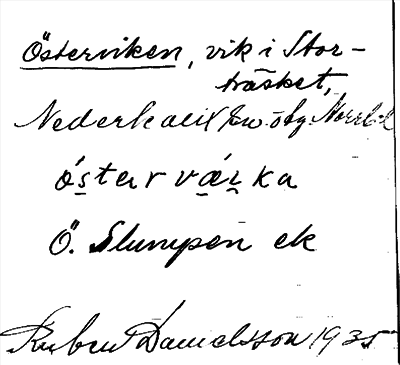 Österviken, vik i Stor-
träsket,
Nederkalix sn o hg. Norrb.l
ó̤s̱tərvǽ̱ṟka
Ö. Slumpen ek
Ruben Danielsson 1935